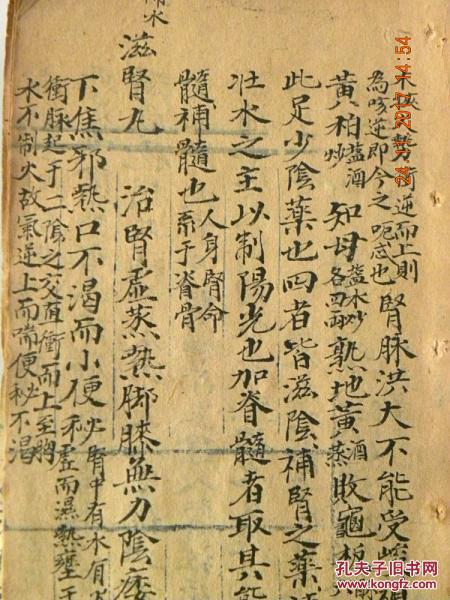 木挾火勢逆而上則
為咳逆即今之呃忒也
腎脉洪大不能受
黃柏鹽酒炒知母鹽水炒各四兩熟地黃酒蒸敗龜板
此足少陰藥也四者皆滋陰補腎之藥
壯水之主以制陽光也加脊髓者取其能
髓補髓也人身腎命系于脊骨
滋腎丸 治腎虛蒸熱脚膝無力陰痿
下焦邪熱口不渴而小便秘腎中有水有
虛而濕熱壅于
衝脉起于二陰之交直衝而上至胸
水不制火故氣逆上而喘便秘不渴
24.11.2017 14:54
孔夫子旧书网